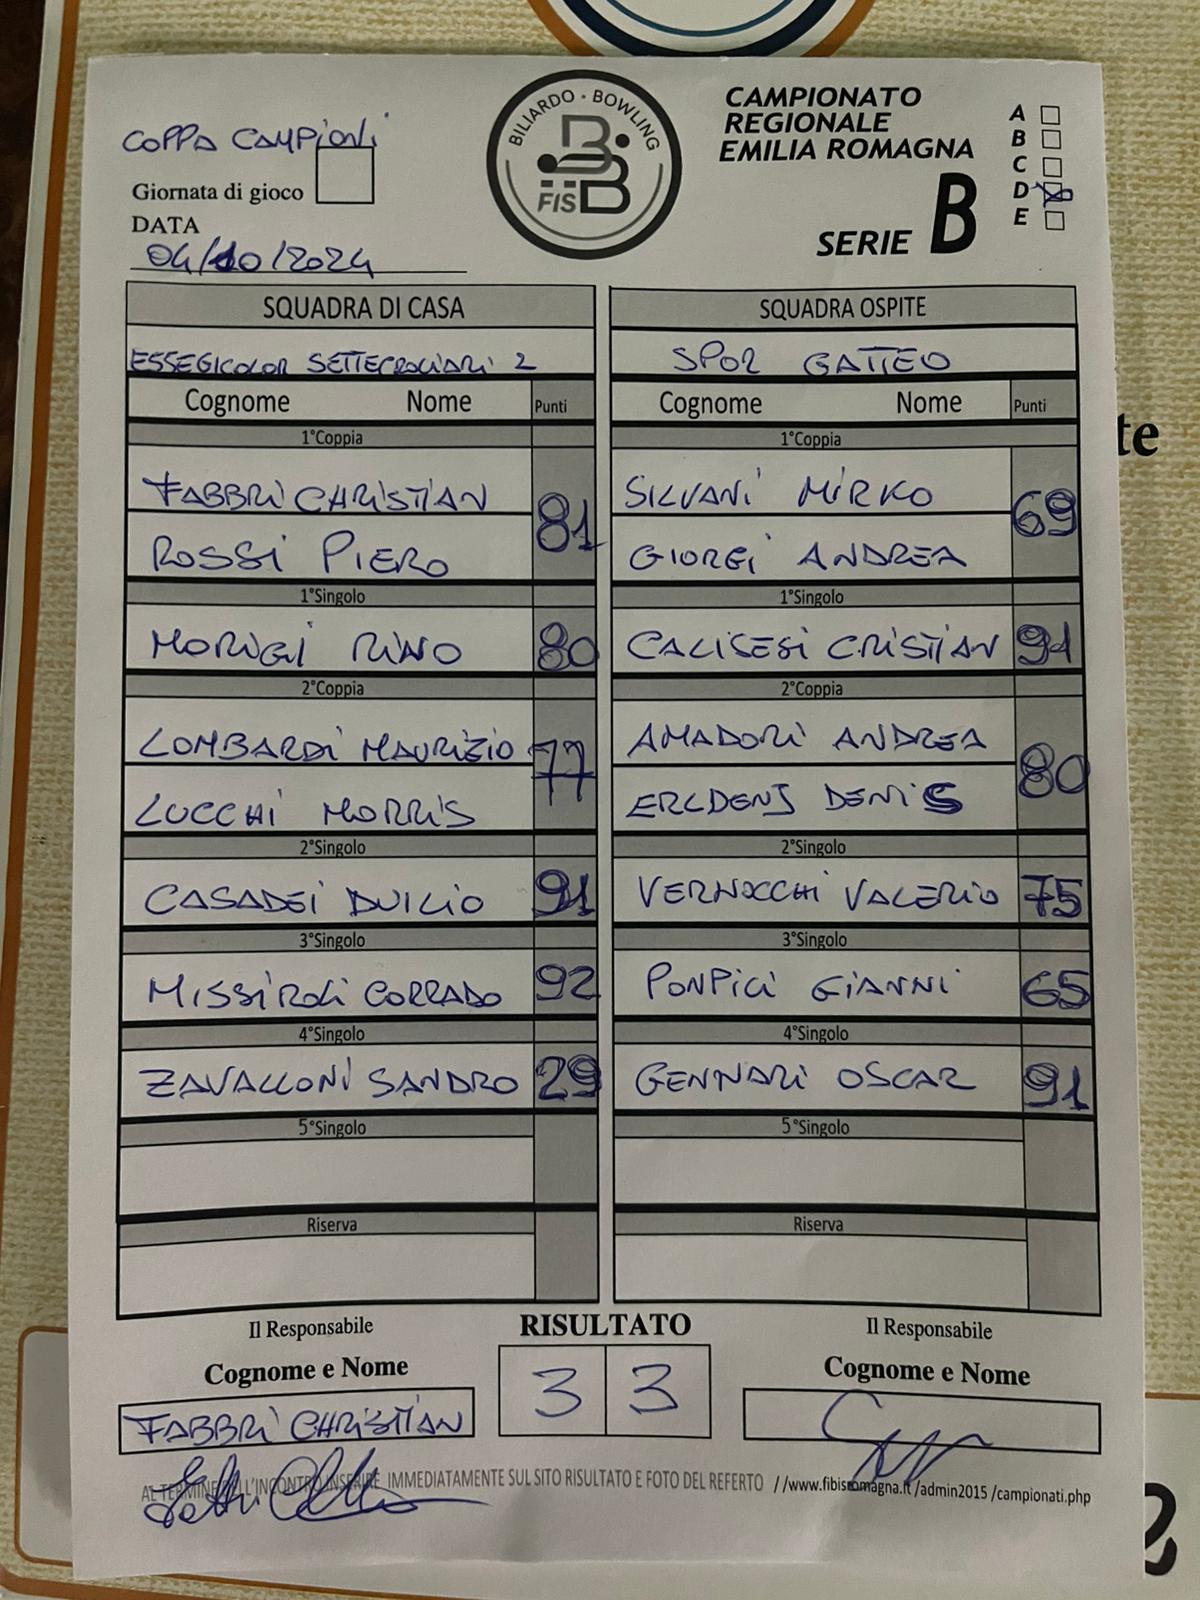 COPPA CAMPIONI
Giornata di gioco
DATA
04/10/2024
BILIARDO · BOWLING
FISBB
CAMPIONATO
REGIONALE
EMILIA ROMAGNA
SERIE B
A
B
C
D
E
SQUADRA DI CASA
SQUADRA OSPITE
ESSEGICOLOR SETTECROCIARI 2
SPOR GATTEO
Cognome Nome Punti
Cognome Nome Punti
1°Coppia
1°Coppia
FABBRI CHRISTIAN
81
ROSSI PIERO
SILVANI MIRKO
69
GIORGI ANDREA
1°Singolo
1°Singolo
MORIGI RINO 80
CALISESI CRISTIAN 91
2°Coppia
2°Coppia
LOMBARDI MAURIZIO
77
LUCCHI MORRIS
AMADORI ANDREA
80
ERCDENJ DENIS
2°Singolo
2°Singolo
CASADEI DUILIO 91
VERNOCCHI VALERIO 75
3°Singolo
3°Singolo
MISSIROLI CORRADO 92
PONPILI GIANNI 65
4°Singolo
4°Singolo
ZAVALLONI SANDRO 29
GENNARI OSCAR 91
5°Singolo
5°Singolo
Riserva
Riserva
Il Responsabile
RISULTATO
Il Responsabile
Cognome e Nome
3 3
Cognome e Nome
FABBRI CHRISTIAN
AL TERMINE DELL'INCONTRO INSERIRE IMMEDIATAMENTE SUL SITO RISULTATO E FOTO DEL REFERTO //www.fibisromagna.it /admin2015 /campionati.php
te
2